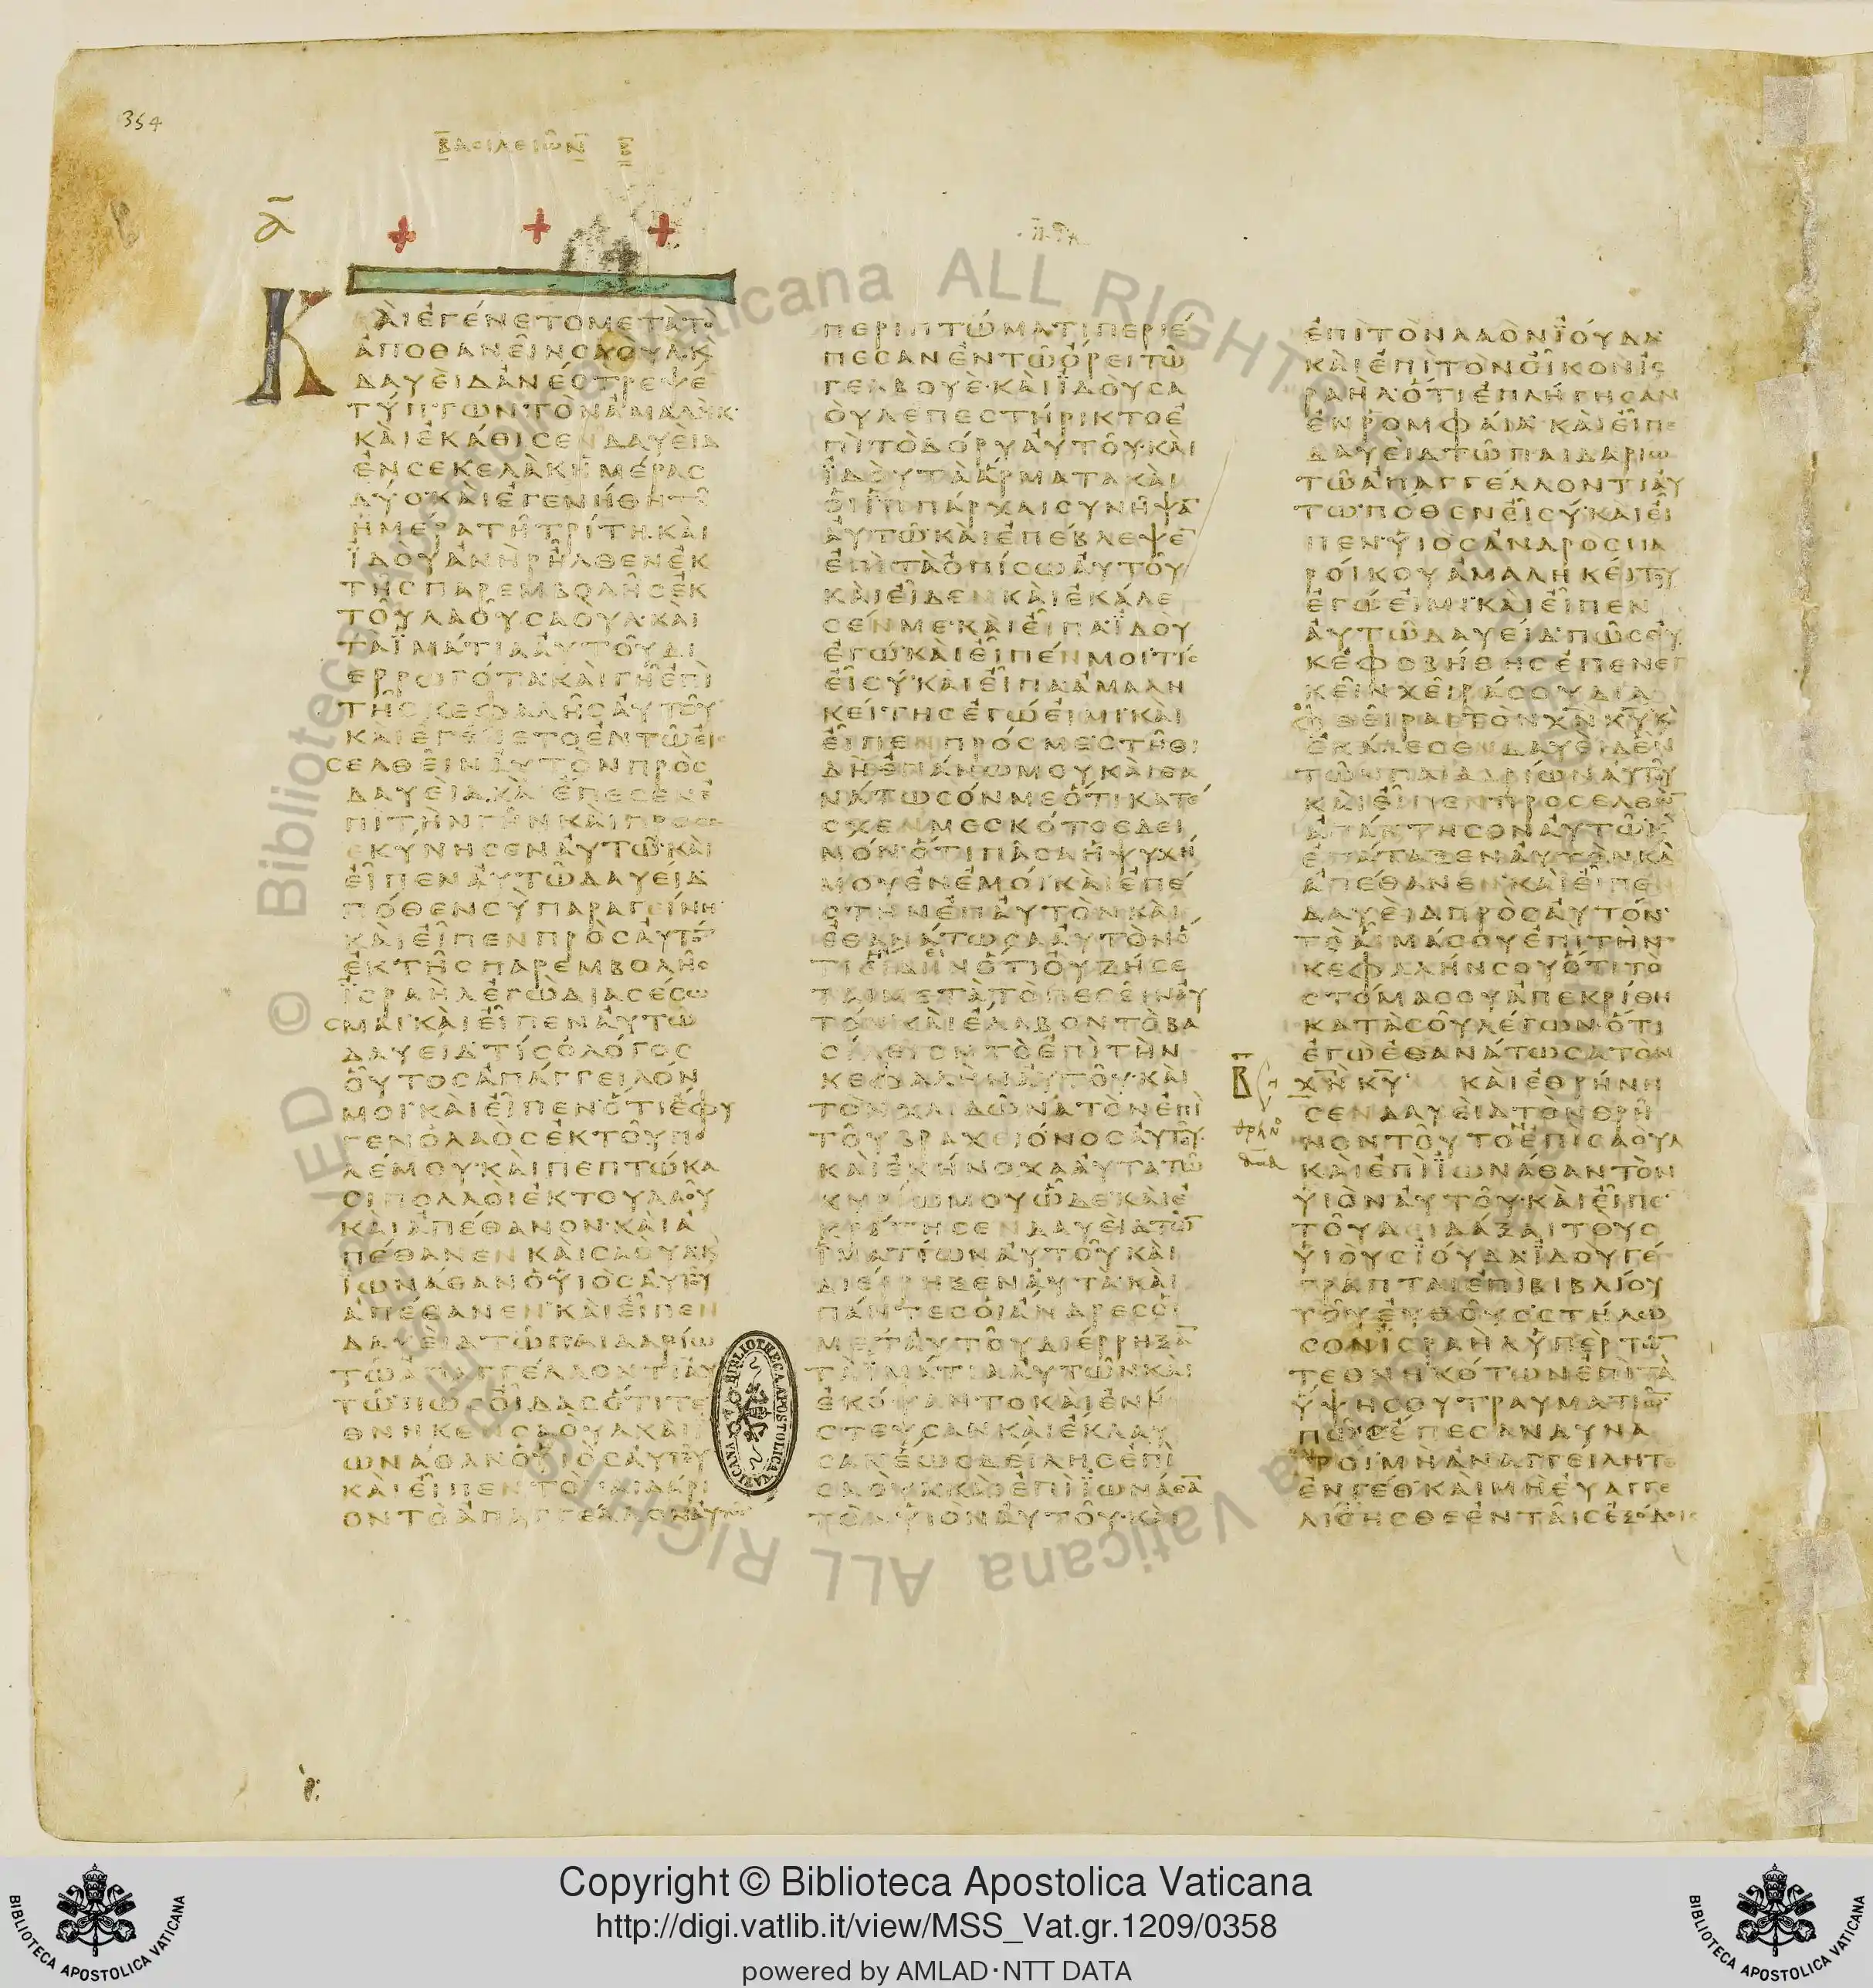 354
ΒΑΣΙΛΕΙΩΝ Β
Α
ΚΑΙΕΓΕΝΕΤΟΜΕΤΑΤΟ
ΑΠΟΘΑΝΕΙΝΣΑΟΥΛΚ
ΔΑΥΕΙΔΑΝΕΣΤΡΕΨΕ
ΤΥΠΤΩΝΤΟΝΑΜΑΛΗΚ
ΚΑΙΕΚΑΘΙΣΕΝΔΑΥΕΙΔ
ΕΝΣΕΚΕΛΑΚΗΜΕΡΑΣ
ΔΥΟΚΑΙΕΓΕΝΗΘΗΤΗ
ΗΜΕΡΑΤΗΤΡΙΤΗΚΑΙ
ΙΔΟΥΑΝΗΡΗΛΘΕΝΕΚ
ΤΗΣΠΑΡΕΜΒΟΛΗΣΕΚ
ΤΟΥΛΑΟΥΣΑΟΥΛΚΑΙ
ΤΑΙΜΑΤΙΑΑΥΤΟΥΔΙ
ΕΡΡΩΓΟΤΑΚΑΙΓΗΕΠΙ
ΤΗΣΚΕΦΑΛΗΣΑΥΤΟΥ
ΚΑΙΕΓΕΝΕΤΟΕΝΤΩΕΙ
ΣΕΛΘΕΙΝΑΥΤΟΝΠΡΟΣ
ΔΑΥΕΙΔΚΑΙΕΠΕΣΕΝΕ
ΠΙΤΗΝΓΗΝΚΑΙΠΡΟΣΕ
ΚΥΝΗΣΕΝΑΥΤΩΚΑΙ
ΕΙΠΕΝΑΥΤΩΔΑΥΕΙΔ
ΠΟΘΕΝΣΥΠΑΡΑΓΕΙΝΗ
ΚΑΙΕΙΠΕΝΠΡΟΣΑΥΤΟ
ΕΚΤΗΣΠΑΡΕΜΒΟΛΗΣ
ΙΣΡΑΗΛΕΓΩΔΙΑΣΕΣΩ
ΣΜΑΙΚΑΙΕΙΠΕΝΑΥΤΩ
ΔΑΥΕΙΔΤΙΣΟΛΟΓΟΣ
ΟΥΤΟΣΑΠΑΓΓΕΙΛΟΝ
ΜΟΙΚΑΙΕΙΠΕΝΟΤΙΕΦΥ
ΓΕΝΟΛΑΟΣΕΚΤΟΥΠΟ
ΛΕΜΟΥΚΑΙΠΕΠΤΩΚΑ
ΣΙΠΟΛΛΟΙΕΚΤΟΥΛΑΟΥ
ΚΑΙΑΠΕΘΑΝΟΝΚΑΙΑ
ΠΕΘΑΝΕΝΚΑΙΣΑΟΥΛΚ
ΙΩΝΑΘΑΝΟΥΙΟΣΑΥΤΟΥ
ΑΠΕΘΑΝΕΝΚΑΙΕΙΠΕΝ
ΔΑΥΕΙΔΤΩΠΑΙΔΑΡΙΩ
ΤΩΑΠΑΓΓΕΛΛΟΝΤΙΑΥ
ΤΩΠΩΣΟΙΔΑΣΟΤΙΤΕ
ΘΝΗΚΕΝΣΑΟΥΛΚΑΙΙ
ΩΝΑΘΑΝΟΥΙΟΣΑΥΤΟΥ
ΚΑΙΕΙΠΕΝΤΟΠΑΙΔΑΡΙ
ΟΝΤΟΑΠΑΓΓΕΛΛΟΝΑΥΤΩ
ΠΕΡΙΠΤΩΜΑΤΙΠΕΡΙΕ
ΠΕΣΑΝΕΝΤΩΟΡΕΙΤΩ
ΓΕΛΒΟΥΕΚΑΙΙΔΟΥΣΑ
ΟΥΛΕΠΕΣΤΗΡΙΚΤΟΕ
ΠΙΤΟΔΟΡΥΑΥΤΟΥΚΑΙ
ΙΔΟΥΤΑΑΡΜΑΤΑΚΑΙ
ΟΙΙΠΠΑΡΧΑΙΣΥΝΗΨΑ
ΑΥΤΩΚΑΙΕΠΕΒΛΕΨΕ
ΕΠΙΤΑΟΠΙΣΩΑΥΤΟΥ
ΚΑΙΕΙΔΕΝΚΑΙΕΚΑΛΕ
ΣΕΝΜΕΚΑΙΕΙΠΑΙΔΟΥ
ΕΓΩΚΑΙΕΙΠΕΝΜΟΙΤΙΣ
ΕΙΣΥΚΑΙΕΙΠΑΑΜΑΛΗ
ΚΕΙΤΗΣΕΓΩΕΙΜΙΚΑΙ
ΕΙΠΕΝΠΡΟΣΜΕΣΤΗΘΙ
ΔΗΕΠΑΝΩΜΟΥΚΑΙΘΑ
ΝΑΤΩΣΟΝΜΕΟΤΙΚΑΤΕ
ΣΧΕΝΜΕΣΚΟΤΟΣΔΕΙ
ΝΟΝΟΤΙΠΑΣΑΗΨΥΧΗ
ΜΟΥΕΝΕΜΟΙΚΑΙΕΠΕ
ΣΤΗΝΕΠΑΥΤΟΝΚΑΙ
ΕΘΑΝΑΤΩΣΑΑΥΤΟΝΟ
ΤΙΗΔΕΙΝΟΤΙΟΥΖΗΣΕ
ΤΑΙΜΕΤΑΤΟΠΕΣΕΙΝΑΥ
ΤΟΝΚΑΙΕΛΑΒΟΝΤΟΒΑ
ΣΙΛΕΙΟΝΤΟΕΠΙΤΗΝ
ΚΕΦΑΛΗΝΑΥΤΟΥΚΑΙ
ΤΟΝΧΛΙΔΩΝΑΤΟΝΕΠΙ
ΤΟΥΒΡΑΧΕΙΟΝΟΣΑΥΤΟΥ
ΚΑΙΕΝΗΝΟΧΑΑΥΤΑΤΩ
ΚΥΡΙΩΜΟΥΩΔΕΚΑΙΕ
ΚΡΑΤΗΣΕΝΔΑΥΕΙΔΤΩ
ΙΜΑΤΙΩΝΑΥΤΟΥΚΑΙ
ΔΙΕΡΡΗΞΕΝΑΥΤΑΚΑΙ
ΠΑΝΤΕΣΟΙΑΝΔΡΕΣΟΙ
ΜΕΤΑΥΤΟΥΔΙΕΡΡΗΞΑ
ΤΑΙΜΑΤΙΑΑΥΤΩΝΚΑΙ
ΕΚΟΨΑΝΤΟΚΑΙΕΝΗ
ΣΤΕΥΣΑΝΚΑΙΕΚΛΑΥ
ΣΑΝΕΩΣΔΕΙΛΗΣΕΠΙ
ΣΑΟΥΛΚΑΙΕΠΙΙΩΝΑΘΑ
ΤΟΝΥΙΟΝΑΥΤΟΥΚΑΙ
ΕΠΙΤΟΝΛΑΟΝΙΟΥΔΑ
ΚΑΙΕΠΙΤΟΝΟΙΚΟΝΙΣ
ΡΑΗΛΟΤΙΕΠΛΗΓΗΣΑΝ
ΕΝΡΟΜΦΑΙΑΚΑΙΕΙΠΕ
ΔΑΥΕΙΔΤΩΠΑΙΔΑΡΙΩ
ΤΩΑΠΑΓΓΕΛΛΟΝΤΙΑΥ
ΤΩΠΟΘΕΝΕΙΣΥΚΑΙΕΙ
ΠΕΝΥΙΟΣΑΝΔΡΟΣΠΑ
ΡΟΙΚΟΥΑΜΑΛΗΚΕΙΤΟΥ
ΕΓΩΕΙΜΙΚΑΙΕΙΠΕΝ
ΑΥΤΩΔΑΥΕΙΔΠΩΣΟΥ
ΚΕΦΟΒΗΘΗΣΕΠΕΝΕΓ
ΚΕΙΝΧΕΙΡΑΣΟΥΔΙΑ
ΦΘΕΙΡΑΙΤΟΝΧΝΚΥΚ
ΕΚΑΛΕΣΕΝΔΑΥΕΙΔΕΝ
ΤΩΝΠΑΙΔΑΡΙΩΝΑΥΤΟΥ
ΚΑΙΕΙΠΕΝΠΡΟΣΕΛΘΩ
ΑΠΑΝΤΗΣΟΝΑΥΤΩΚ
ΕΠΑΤΑΞΕΝΑΥΤΟΝΚΑΙ
ΑΠΕΘΑΝΕΝΚΑΙΕΙΠΕΝ
ΔΑΥΕΙΔΠΡΟΣΑΥΤΟΝ
ΤΟΑΙΜΑΣΟΥΕΠΙΤΗΝ
ΚΕΦΑΛΗΝΣΟΥΟΤΙΤΟ
ΣΤΟΜΑΣΟΥΑΠΕΚΡΙΘΗ
ΚΑΤΑΣΟΥΛΕΓΩΝΟΤΙ
ΕΓΩΕΘΑΝΑΤΩΣΑΤΟΝ
Β
ΧΝΚΥ ΚΑΙΕΘΡΗΝΗ
ΣΕΝΔΑΥΕΙΔΤΟΝΘΡΗ
ΝΟΝΤΟΥΤΟΝΕΠΙΣΑΟΥΛ
ΚΑΙΕΠΙΙΩΝΑΘΑΝΤΟΝ
ΥΙΟΝΑΥΤΟΥΚΑΙΕΙΠΕ
ΤΟΥΔΙΔΑΞΑΙΤΟΥΣ
ΥΙΟΥΣΙΟΥΔΑΙΔΟΥΓΕ
ΓΡΑΠΤΑΙΕΠΙΒΙΒΛΙΟΥ
ΤΟΥΕΥΘΟΥΣΣΤΗΛΩ
ΣΟΝΙΣΡΑΗΛΥΠΕΡΤΩ
ΤΕΘΝΗΚΟΤΩΝΕΠΙΤΑ
ΥΨΗΣΟΥΤΡΑΥΜΑΤΙΩ
ΠΩΣΕΠΕΣΑΝΔΥΝΑ
ΤΟΙΜΗΑΝΑΓΓΕΙΛΗΤΕ
ΕΝΓΕΘΚΑΙΜΗΕΥΑΓΓΕ
ΛΙΣΗΣΘΕΕΝΤΑΙΣΕΞΟΔΟΙΣ
BIBLIOTHECA APOSTOLICA VATICANA
© Biblioteca Apostolica Vaticana ALL RIGHTS RESERVED
Copyright © Biblioteca Apostolica Vaticana
http://digi.vatlib.it/view/MSS_Vat.gr.1209/0358
powered by AMLAD·NTT DATA
BIBLIOTECA APOSTOLICA VATICANA
BIBLIOTECA APOSTOLICA VATICANA